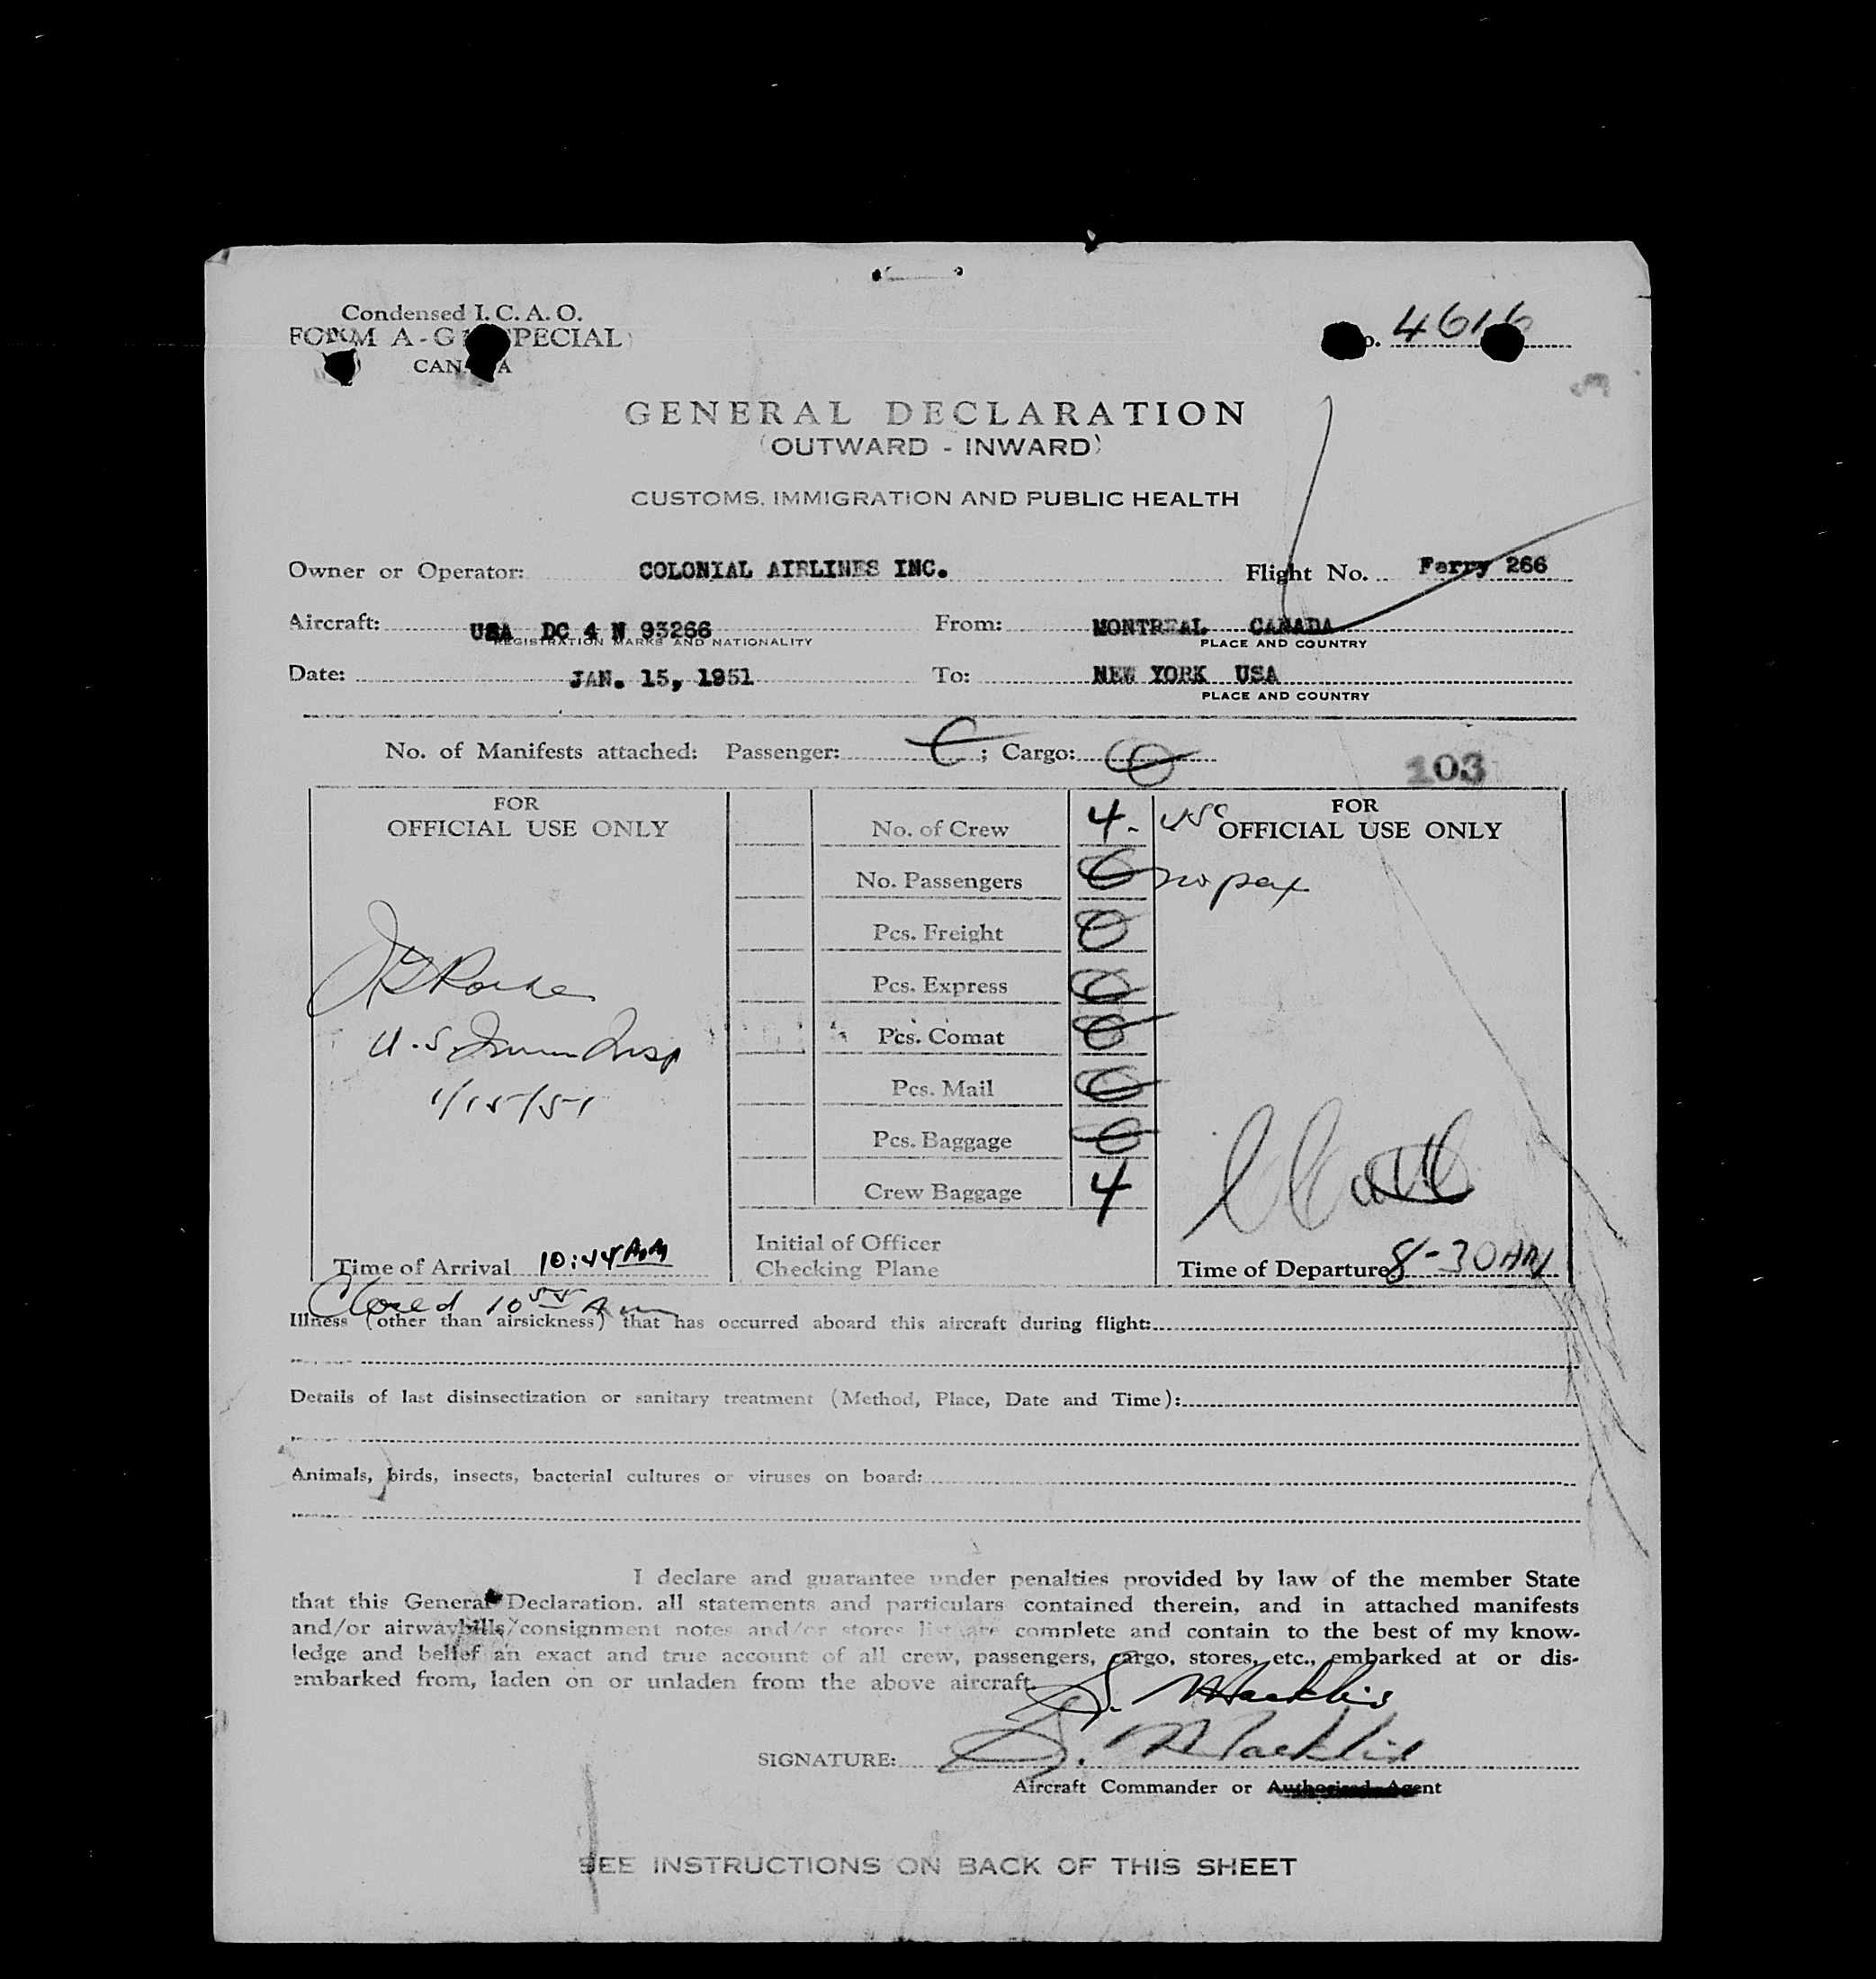 Condensed I. C. A. O.
FORM A-G (SPECIAL)
CANADA
No. 4616
GENERAL DECLARATION
(OUTWARD - INWARD)
CUSTOMS, IMMIGRATION AND PUBLIC HEALTH
Owner or Operator: COLONIAL AIRLINES INC. Flight No. Ferry 266
Aircraft: USA DC 4 N 93266 From: MONTREAL CANADA
REGISTRATION MARKS AND NATIONALITY PLACE AND COUNTRY
Date: JAN. 15, 1951 To: NEW YORK USA
PLACE AND COUNTRY
No. of Manifests attached: Passenger: 0; Cargo: 0
103
FOR
OFFICIAL USE ONLY
U.S. Imm Insp
1/15/51
Time of Arrival 10:44 A.M
Closed 10 55 Am
No. of Crew 4. USC
No. Passengers 0 no pax
Pcs. Freight 0
Pcs. Express 0
Pcs. Comat 0
Pcs. Mail 0
Pcs. Baggage 0
Crew Baggage 4
Initial of Officer
Checking Plane
FOR
OFFICIAL USE ONLY
Time of Departure 8-30 AM
Illness (other than airsickness) that has occurred aboard this aircraft during flight:
Details of last disinsectization or sanitary treatment (Method, Place, Date and Time):
Animals, birds, insects, bacterial cultures or viruses on board:
I declare and guarantee under penalties provided by law of the member State
that this General Declaration. all statements and particulars contained therein, and in attached manifests
and/or airwaybills/consignment notes and/or stores list are complete and contain to the best of my know-
ledge and belief an exact and true account of all crew, passengers, cargo, stores, etc., embarked at or dis-
embarked from, laden on or unladen from the above aircraft.
S. Macklin
SIGNATURE: S. Macklin
Aircraft Commander or Authorized Agent
SEE INSTRUCTIONS ON BACK OF THIS SHEET